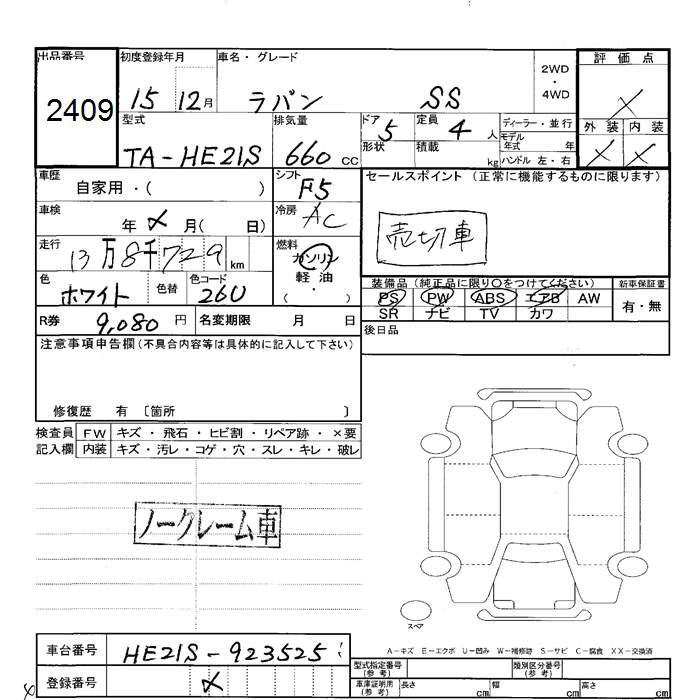 出品番号 初度登録年月 車名・グレード 評価点
2409 15年 12月 ラパン SS 2WD・4WD ×
型式 排気量 ドア 定員 ディーラー・並行 外装 内装
TA-HE21S 660cc 5 4人 モデル年式 年 × ×
形状 積載 kg ハンドル 左・右
車歴 自家用・( ) シフト F5 セールスポイント (正常に機能するものに限ります)
車検 年 × 月( 日) 冷房 AC
売切車
走行 13万8千729km 燃料 ガソリン 軽油 ( ・ )
色 ホワイト 色替 色コード 26U
装備品(純正品に限り○をつけてください) 新車保証書
PS PW ABS エアB AW 有・無
SR ナビ TV カワ
R券 9,080円 名変期限 月 日 後日品
注意事項申告欄(不具合内容等は具体的に記入して下さい)
修復歴 有 〔箇所 〕
検査員 FW キズ・飛石・ヒビ割・リペア跡・×要
記入欄 内装 キズ・汚レ・コゲ・穴・スレ・キレ・破レ
ノークレーム車
スペア
A-キズ E-エクボ U-凹み W-補修跡 S-サビ C-腐食 XX-交換済
車台番号 HE21S-923525
型式指定番号(参考) 類別区分番号(参考)
登録番号 ×
車庫証明用(参考) 長さ cm 幅 cm 高さ cm